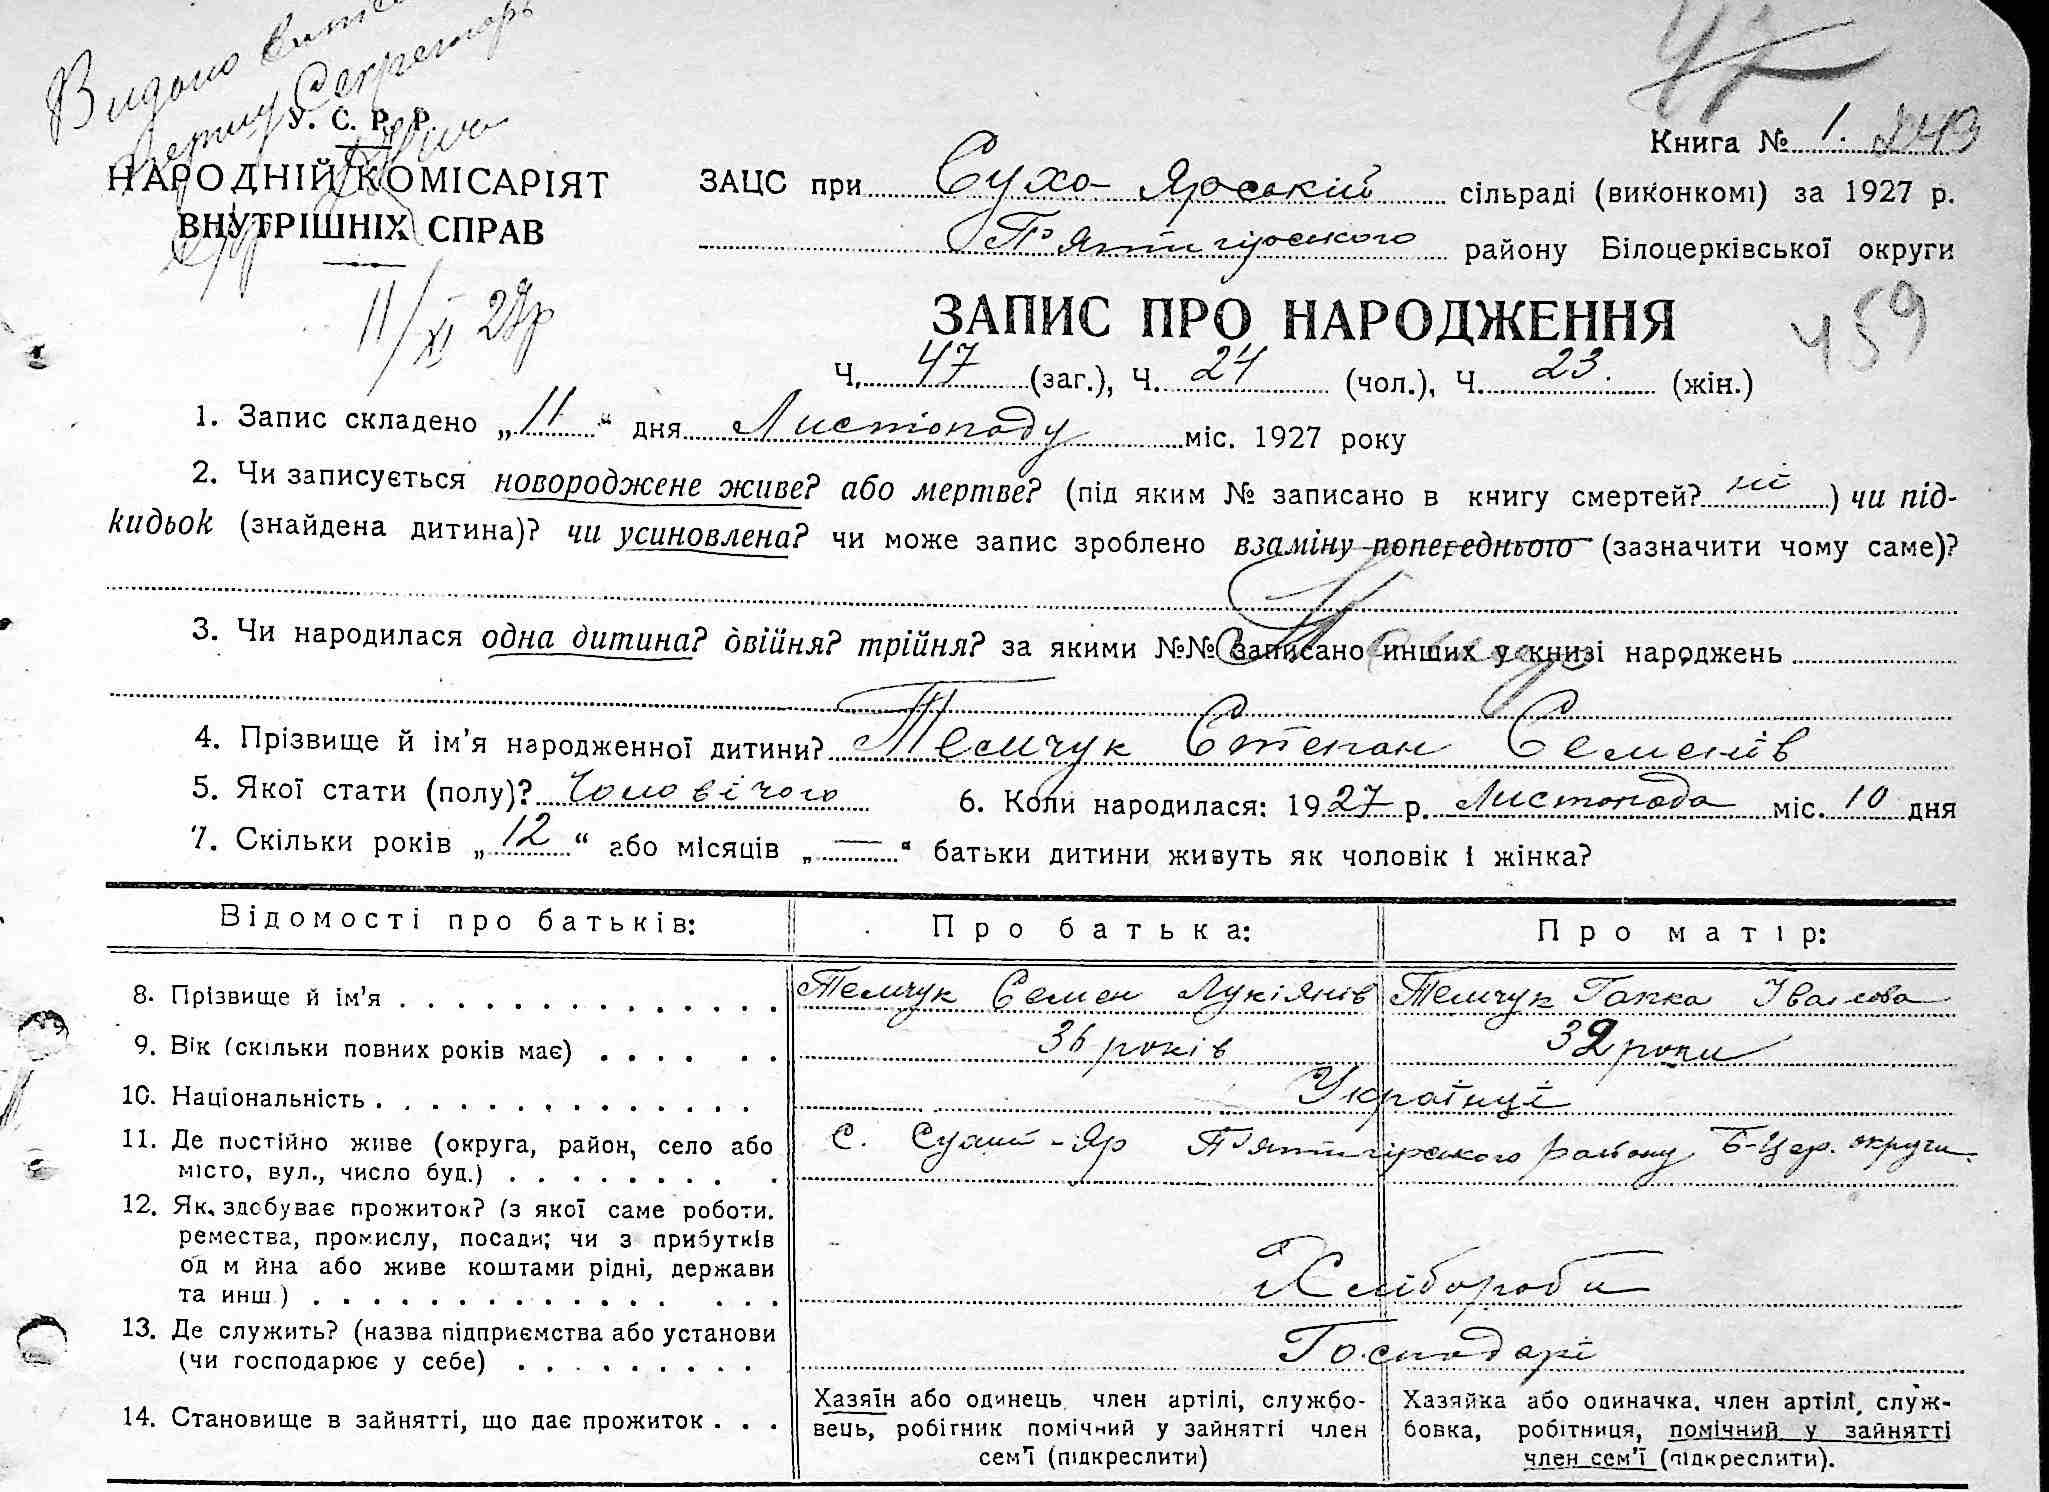 47
Видано
Секретарь
У. С. Р. Р.
НАРОДНІЙ КОМІСАРІЯТ
ВНУТРІШНІХ СПРАВ
11/XI 27р
Книга № 1. 243
ЗАЦС при Сухо-Ярській сільраді (виконкомі) за 1927 р.
П'ятигірського району Білоцерківської округи
ЗАПИС ПРО НАРОДЖЕННЯ
459
Ч. 47 (заг.), Ч. 24 (чол.), Ч. 23. (жін.)
1. Запис складено „11“ дня Листопаду міс. 1927 року
2. Чи записується новороджене живе? або мертве? (під яким № записано в книгу смертей? ні) чи під-
кидьок (знайдена дитина)? чи усиновлена? чи може запис зроблено взаміну попереднього (зазначити чому саме)?
3. Чи народилася одна дитина? двійня? трійня? за якими №№ записано инших у книзі народжень
4. Прізвище й ім'я народженної дитини? Темчук Степан Семенів
5. Якої стати (полу)? Чоловічого 6. Коли народилася: 1927 р. Листопада міс. 10 дня
7. Скільки років „12“ або місяців „—“ батьки дитини живуть як чоловік і жінка?
Відомості про батьків: Про батька: Про матір:
8. Прізвище й ім'я Темчук Семен Лукіянів Темчук Гапка Іванова
9. Вік (скільки повних років має) 36 років 32 роки
10. Національність Українці
11. Де постійно живе (округа, район, село або С. Сухий-Яр П'ятигірського району Б-Цер. округи.
місто, вул., число буд.)
12. Як здобуває прожиток? (з якої саме роботи.
ремества, промислу, посади; чи з прибутків
од м йна або живе коштами рідні, держави
та инш.) Хлібороби
13. Де служить? (назва підприємства або установи Господарі
(чи господарює у себе)
14. Становище в зайнятті, що дає прожиток
Хазяїн або одинець, член артілі, службо-
вець, робітник помічний у зайнятті член
сем'ї (підкреслити)
Хазяйка або одиначка, член артілі, служ-
бовка, робітниця, помічний у зайнятті
член сем'ї (підкреслити).